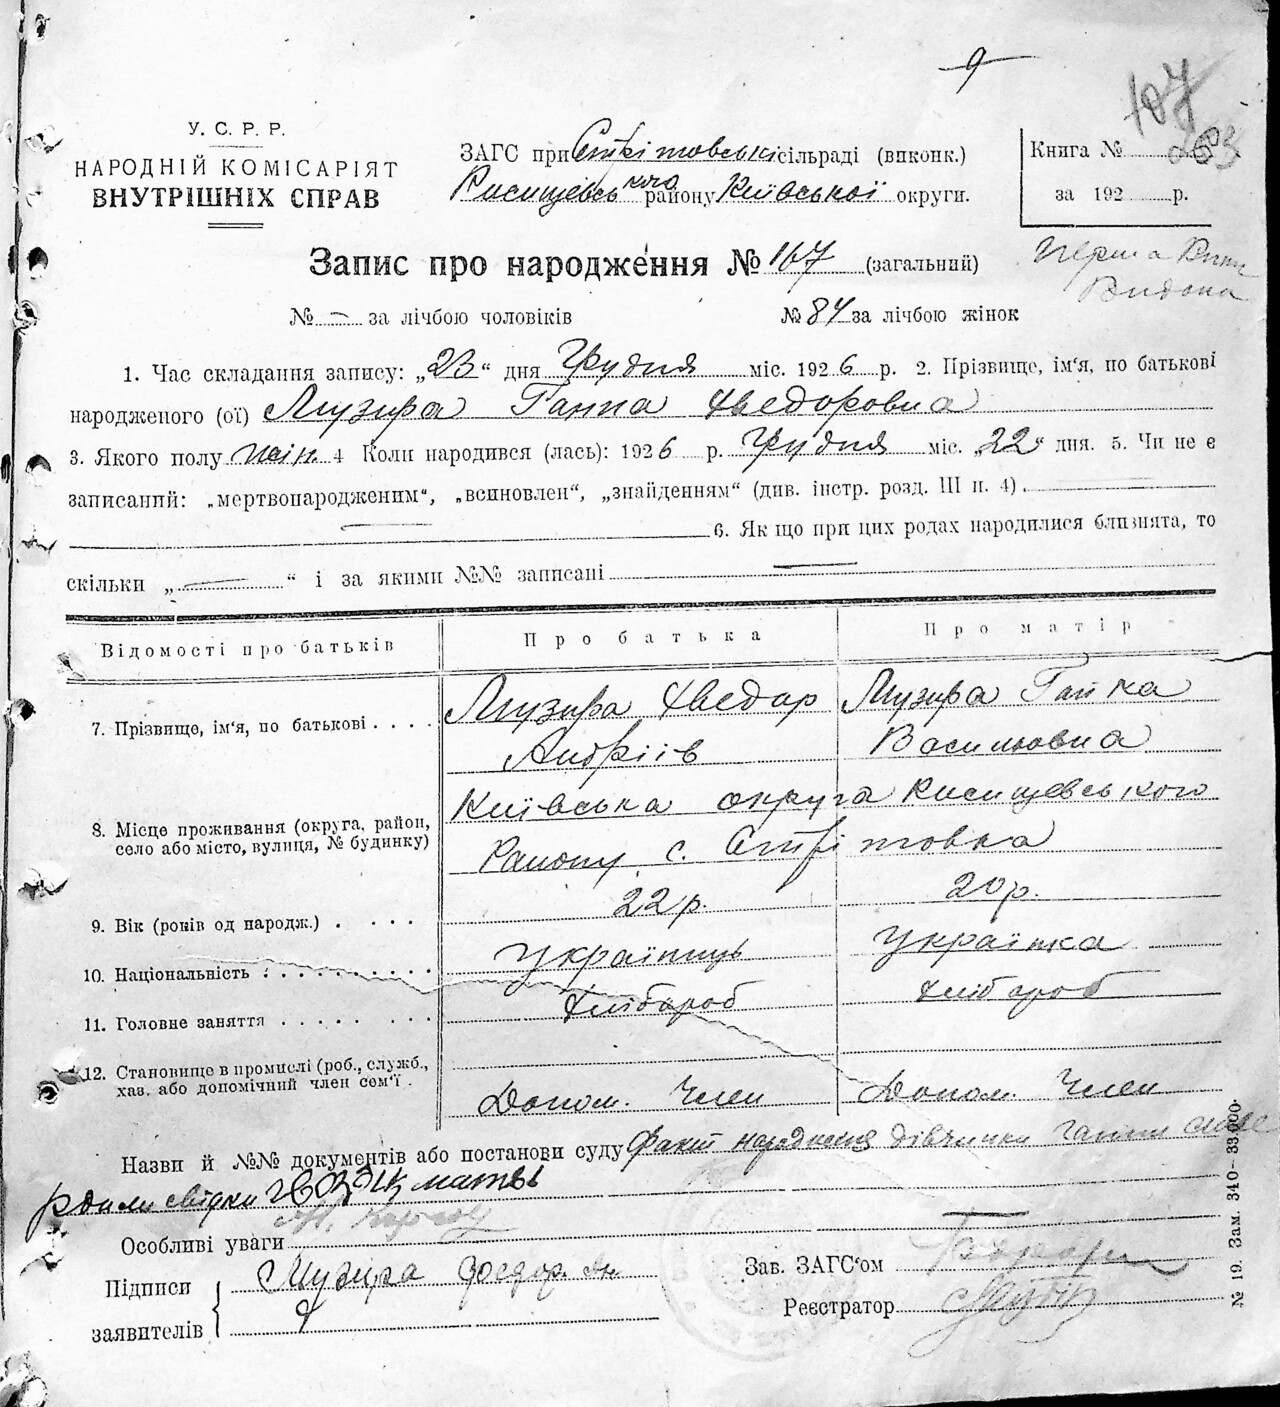 9
107
У. С. Р. Р.
НАРОДНІЙ КОМІСАРІЯТ
ВНУТРІШНІХ СПРАВ
ЗАГС при Стрітовські сільраді (виконк.)
Кисищевського району Київської округи.
Книга №
за 192 р.
Запис про народження № 167 (загальний)
Перша
Видана
№ – за лічбою чоловіків № 84 за лічбою жінок
1. Час складання запису: „23“ дня Грудня міс. 1926 р. 2. Прізвище, ім'я, по батькові
народженого (ої) Музира Ганна Хведоровна
3. Якого полу жін. 4 Коли народився (лась): 1926 р. Грудня міс. „22“ дня. 5. Чи не є
записаний: „мертвонародженим“, „всиновлен“, „знайденням“ (див. інстр. розд. III п. 4).
6. Як що при цих родах народилися близнята, то
скільки „ “ і за якими №№ записані
Відомості про батьків Про батька Про матір
7. Прізвище, ім'я, по батькові . . . . Музира Хведор Музира Ганка
Андріїв Василювна
8. Місце проживання (округа, район, село або місто, вулиця, № будинку) Київська округа Кисищевського
Району с. Стрітовка
9. Вік (років од народж.) . . . . 22 р. 20 р.
10. Національність . . . . . . . . . . Українець Українка
11. Головне заняття . . . . . . . . Хлібороб Хлібороб
12. Становище в промислі (роб., службу.,
хаз. або допомічний член сем'ї . Допом. Член Допом. Член
Назви й №№ документів або постанови суду факт народження дівчинки Ганни
свідки
Особливі уваги
Підписи
заявителів
Музира Федор Ан
Зав. ЗАГС'ом
Реєстратор
№ 19. Зам. 340—33.000.